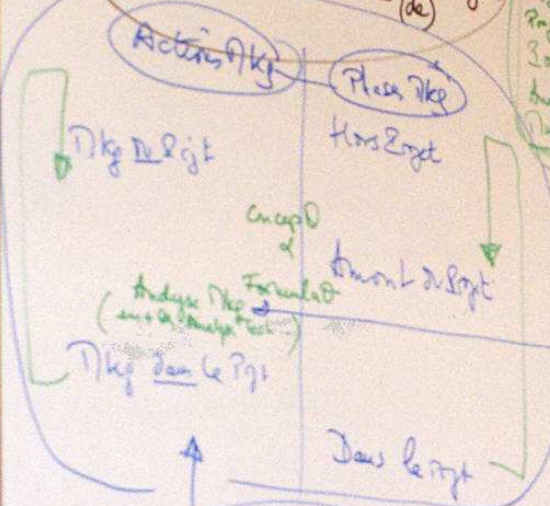 (de)
Actions Mkg
Phases Mkg
Hors Projet
Mkg Du Projt
Concep°
&
Formulat°
Amont du Projt
Analyse Mkg
(en + des Analyse Tech...)
Mkg dans le Pjt
Dans le projt